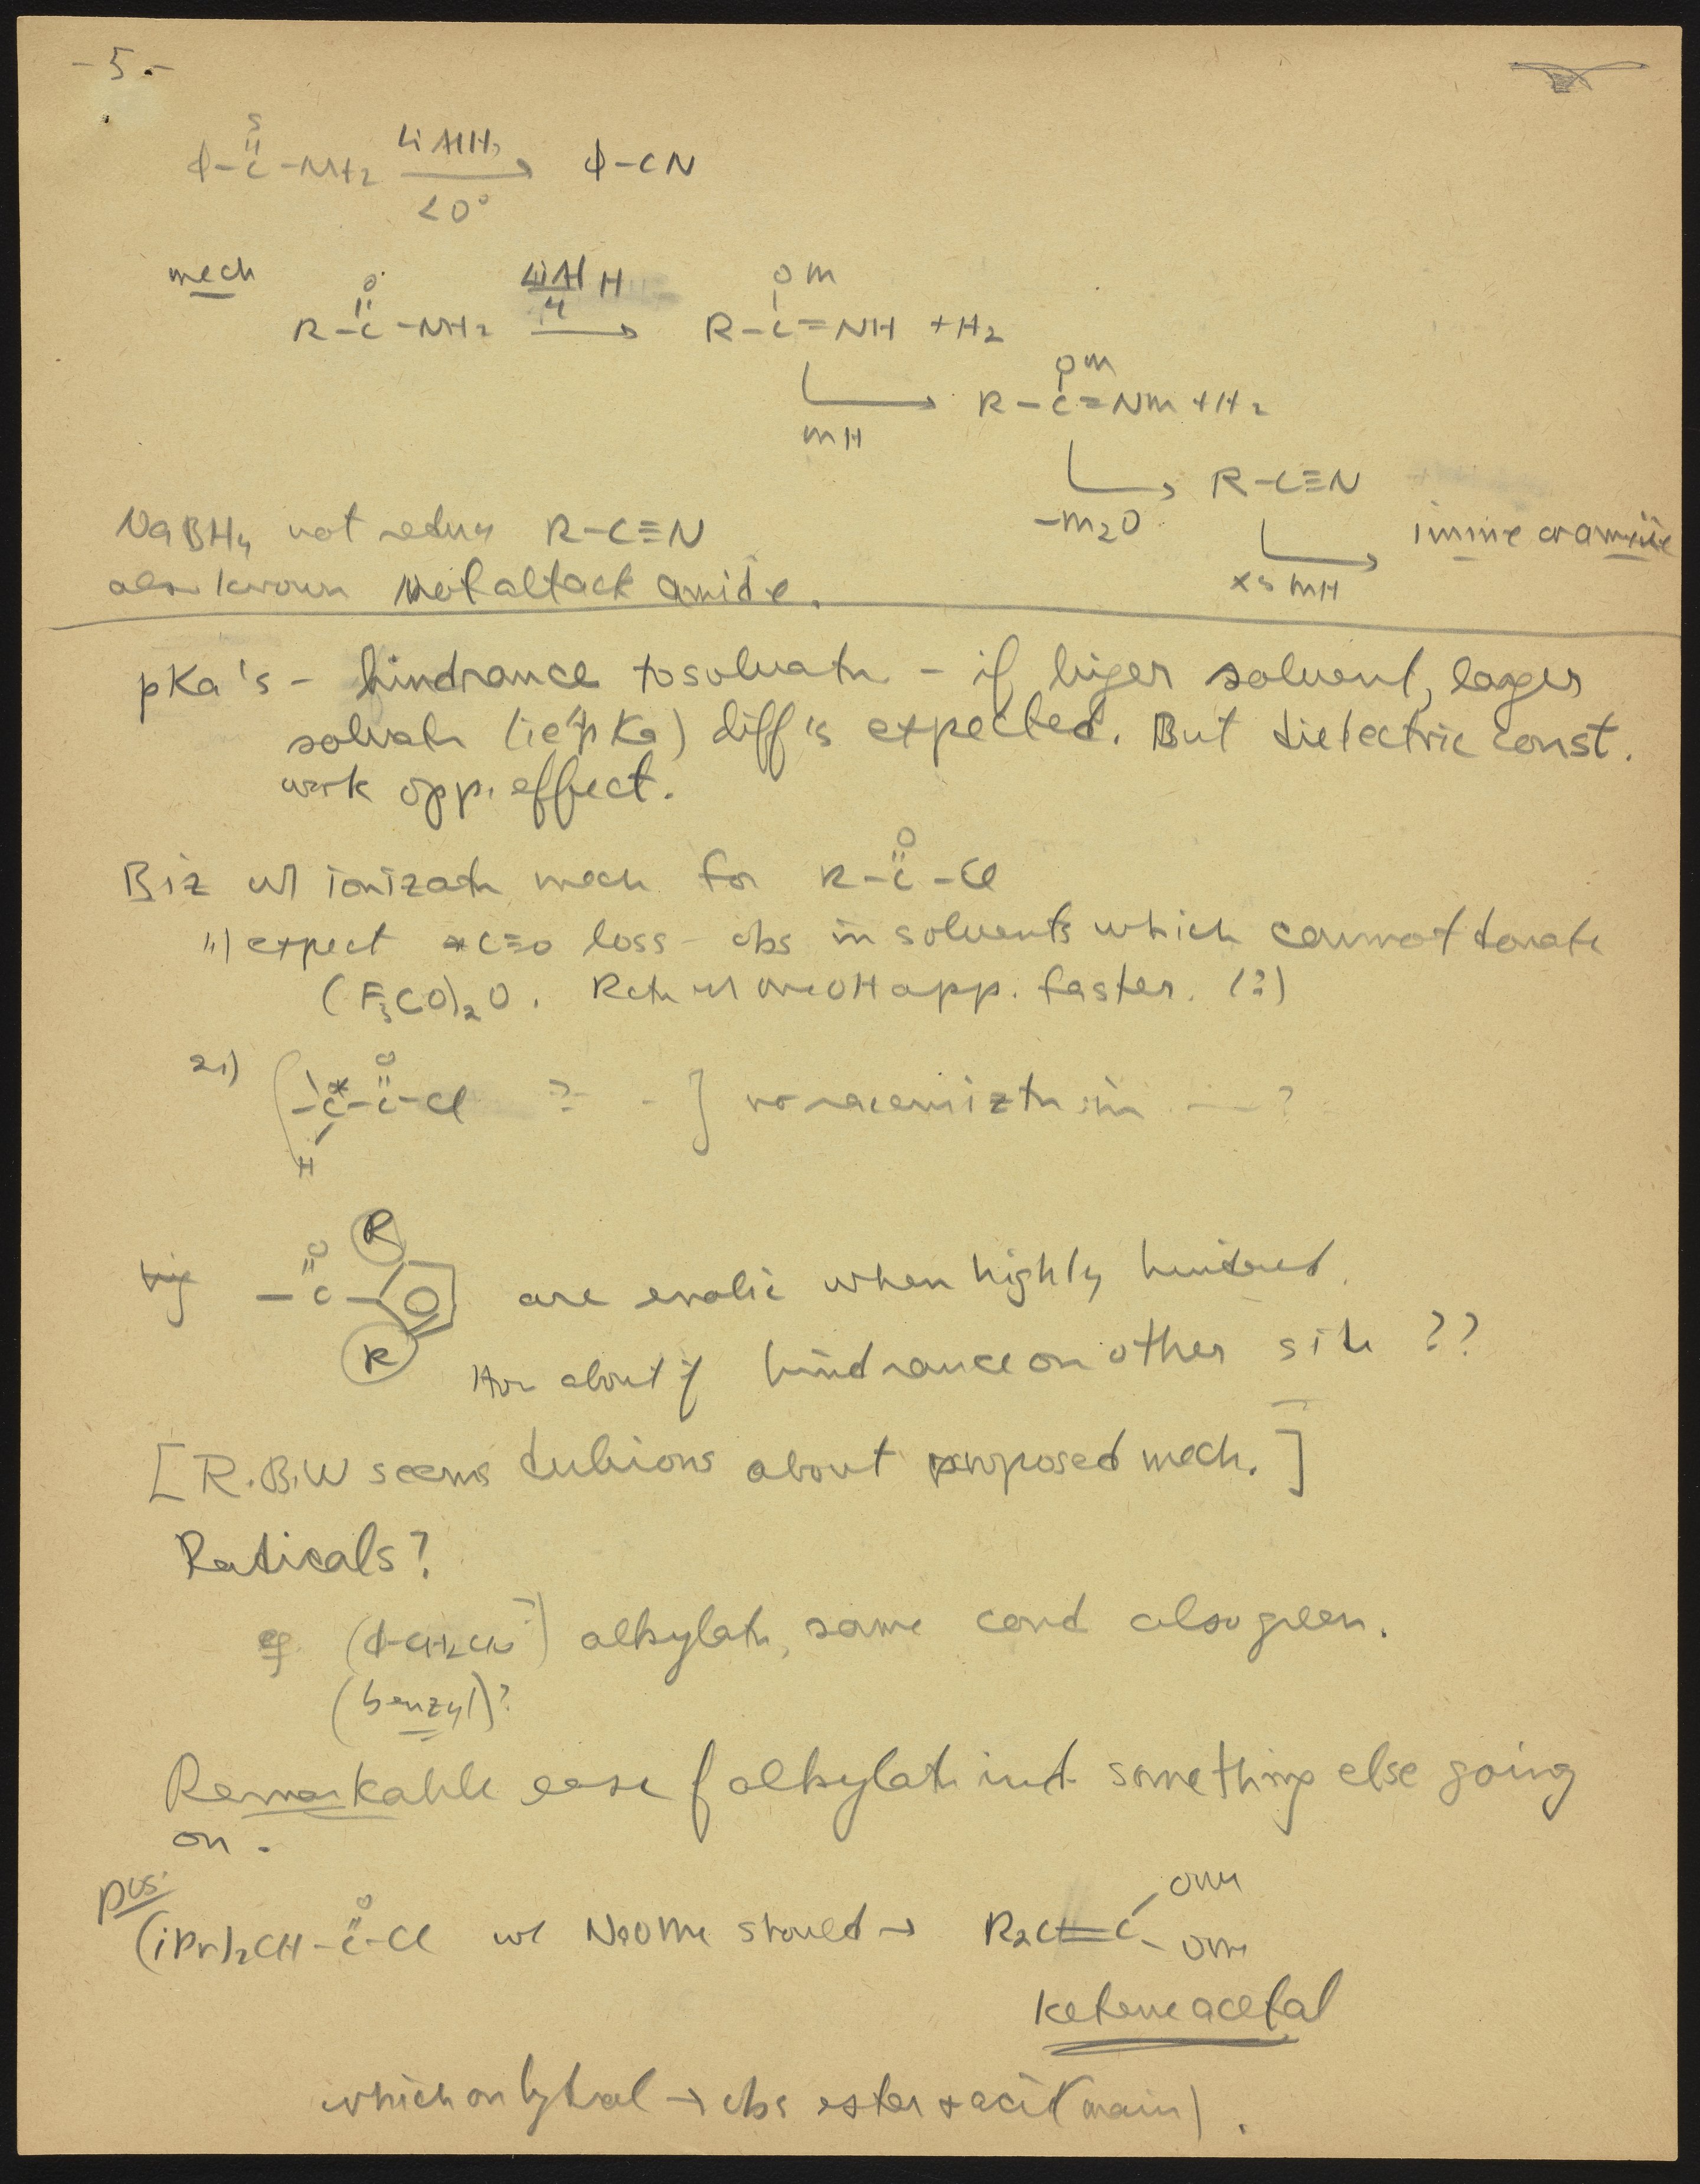 - 5 -
S
ϕ-C-NH2 LiAlH4 → ϕ-CN
<0°
mech
O OM
R-C-NH2 LiAlH4 → R-C=NH + H2
OM
MH → R-C=NM + H2
-M2O → R-C≡N
NaBH4 not reduce R-C≡N
xs MH → imine or amine
also known not attack amide.
pKa's - hindrance to solvatn - if bigger solvent, larger
solvatn (ie pKa) diff's expected. But dielectric const.
work opp. effect.
Biz w/ ionizatn mech for R-C-Cl
O
1) expect *C≡O loss - obs in solvents which cannot donate
(F3CO)2O. Rctn w/ MeOH app. faster. (?)
2.) -C*-C-Cl ? - ] no racemiztn in — ?
O
H
R
O
-C- are enolic when highly hindered.
R
How about if hindrance on other side ??
[R.B.W seems dubious about proposed mech.]
Radicals?
eg (ϕ-CH2CN ?) alkylatn, same cond also green.
(benzyl)?
Remarkable ease of alkylatn ind. something else going
on.
pos.
O OMe
(iPr)2CH-C-Cl w/ NaOMe should → R2C=C
OMe
Ketene acetal
which on hydrol → obs ester + acid (main).